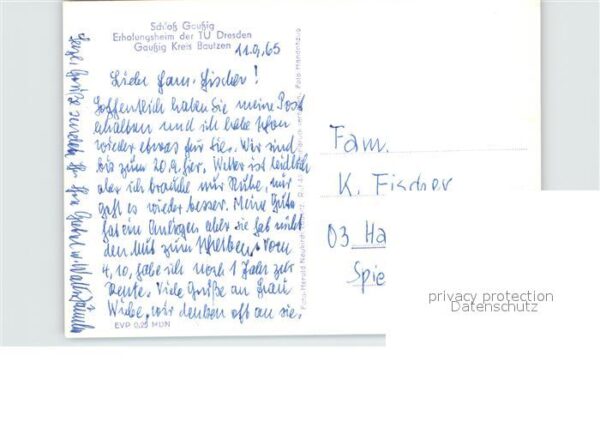 Schloß Gaußig
Erholungsheim der TU Dresden
Gaußig Kreis Bautzen
11.9.65
Liebe Fam. Fischer!
Hoffentlich haben Sie meine Post
erhalten und ich habe schon
wieder etwas für Sie. Wir sind
bis zum 20.9. hier. Wetter ist leidlich
aber ich brauche nur Ruhe, mir
geht es wieder besser. Meine Gute
hat ein Anliegen aber sie hat nicht
den Mut zum Schreiben. Vom
4.10. habe ich noch 1 Jahr zur
Rente. Viele Grüße an Frau
Wiebe, wir denken oft an sie.
Herzl. Grüße
EVP 0,20 MDN
Fam.
K. Fischer
03 Ha
Spie
privacy protection
Datenschutz